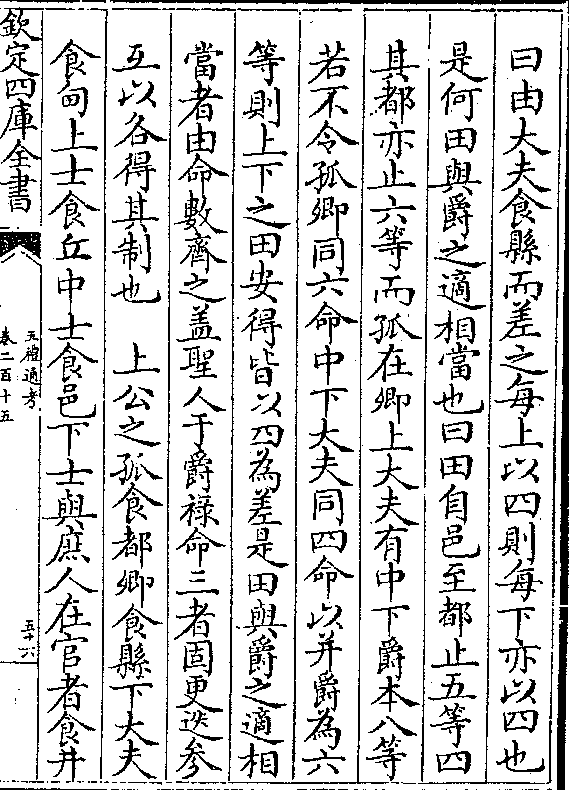 曰由大夫食縣而差之每上以四則每下亦以四也
是何田與爵之適相當也曰田自邑至都止五等四
其都亦止六等而孤在卿上大夫有中下爵本八等
若不令孤卿同六命中下大夫同四命以并爵為六
等則上下之田安得皆以四為差是田與爵之適相
當者由命數齊之盖聖人于爵禄命三者固更迭参
互以各得其制也　上公之孤食都卿食縣下大夫
食甸上士食丘中士食邑下士與庶人在官者食井
欽定四庫全書
五禮通考
卷二百十五
五十六